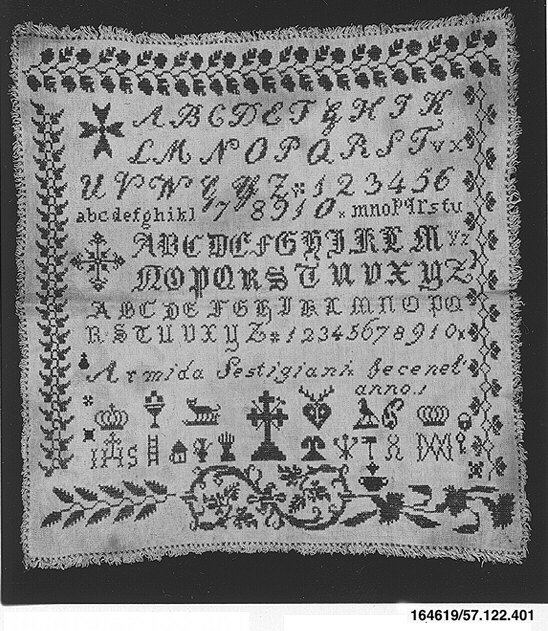 A B C D E F G H I K
L M N O P Q R S T v x
U V W X Y Z 1 2 3 4 5 6
a b c d e f g h i k l 7 8 9 1 0 x m n o p q r s t u
A B C D E F G H I K L M Y z
N O P Q R S T U V X Y Z
A B C D E F G H I K L M N O P Q
R S T U V X Y Z 1 2 3 4 5 6 7 8 9 1 0 x
Armida Sestigiani fece nel
anno 1
IHS
164619/57.122.401